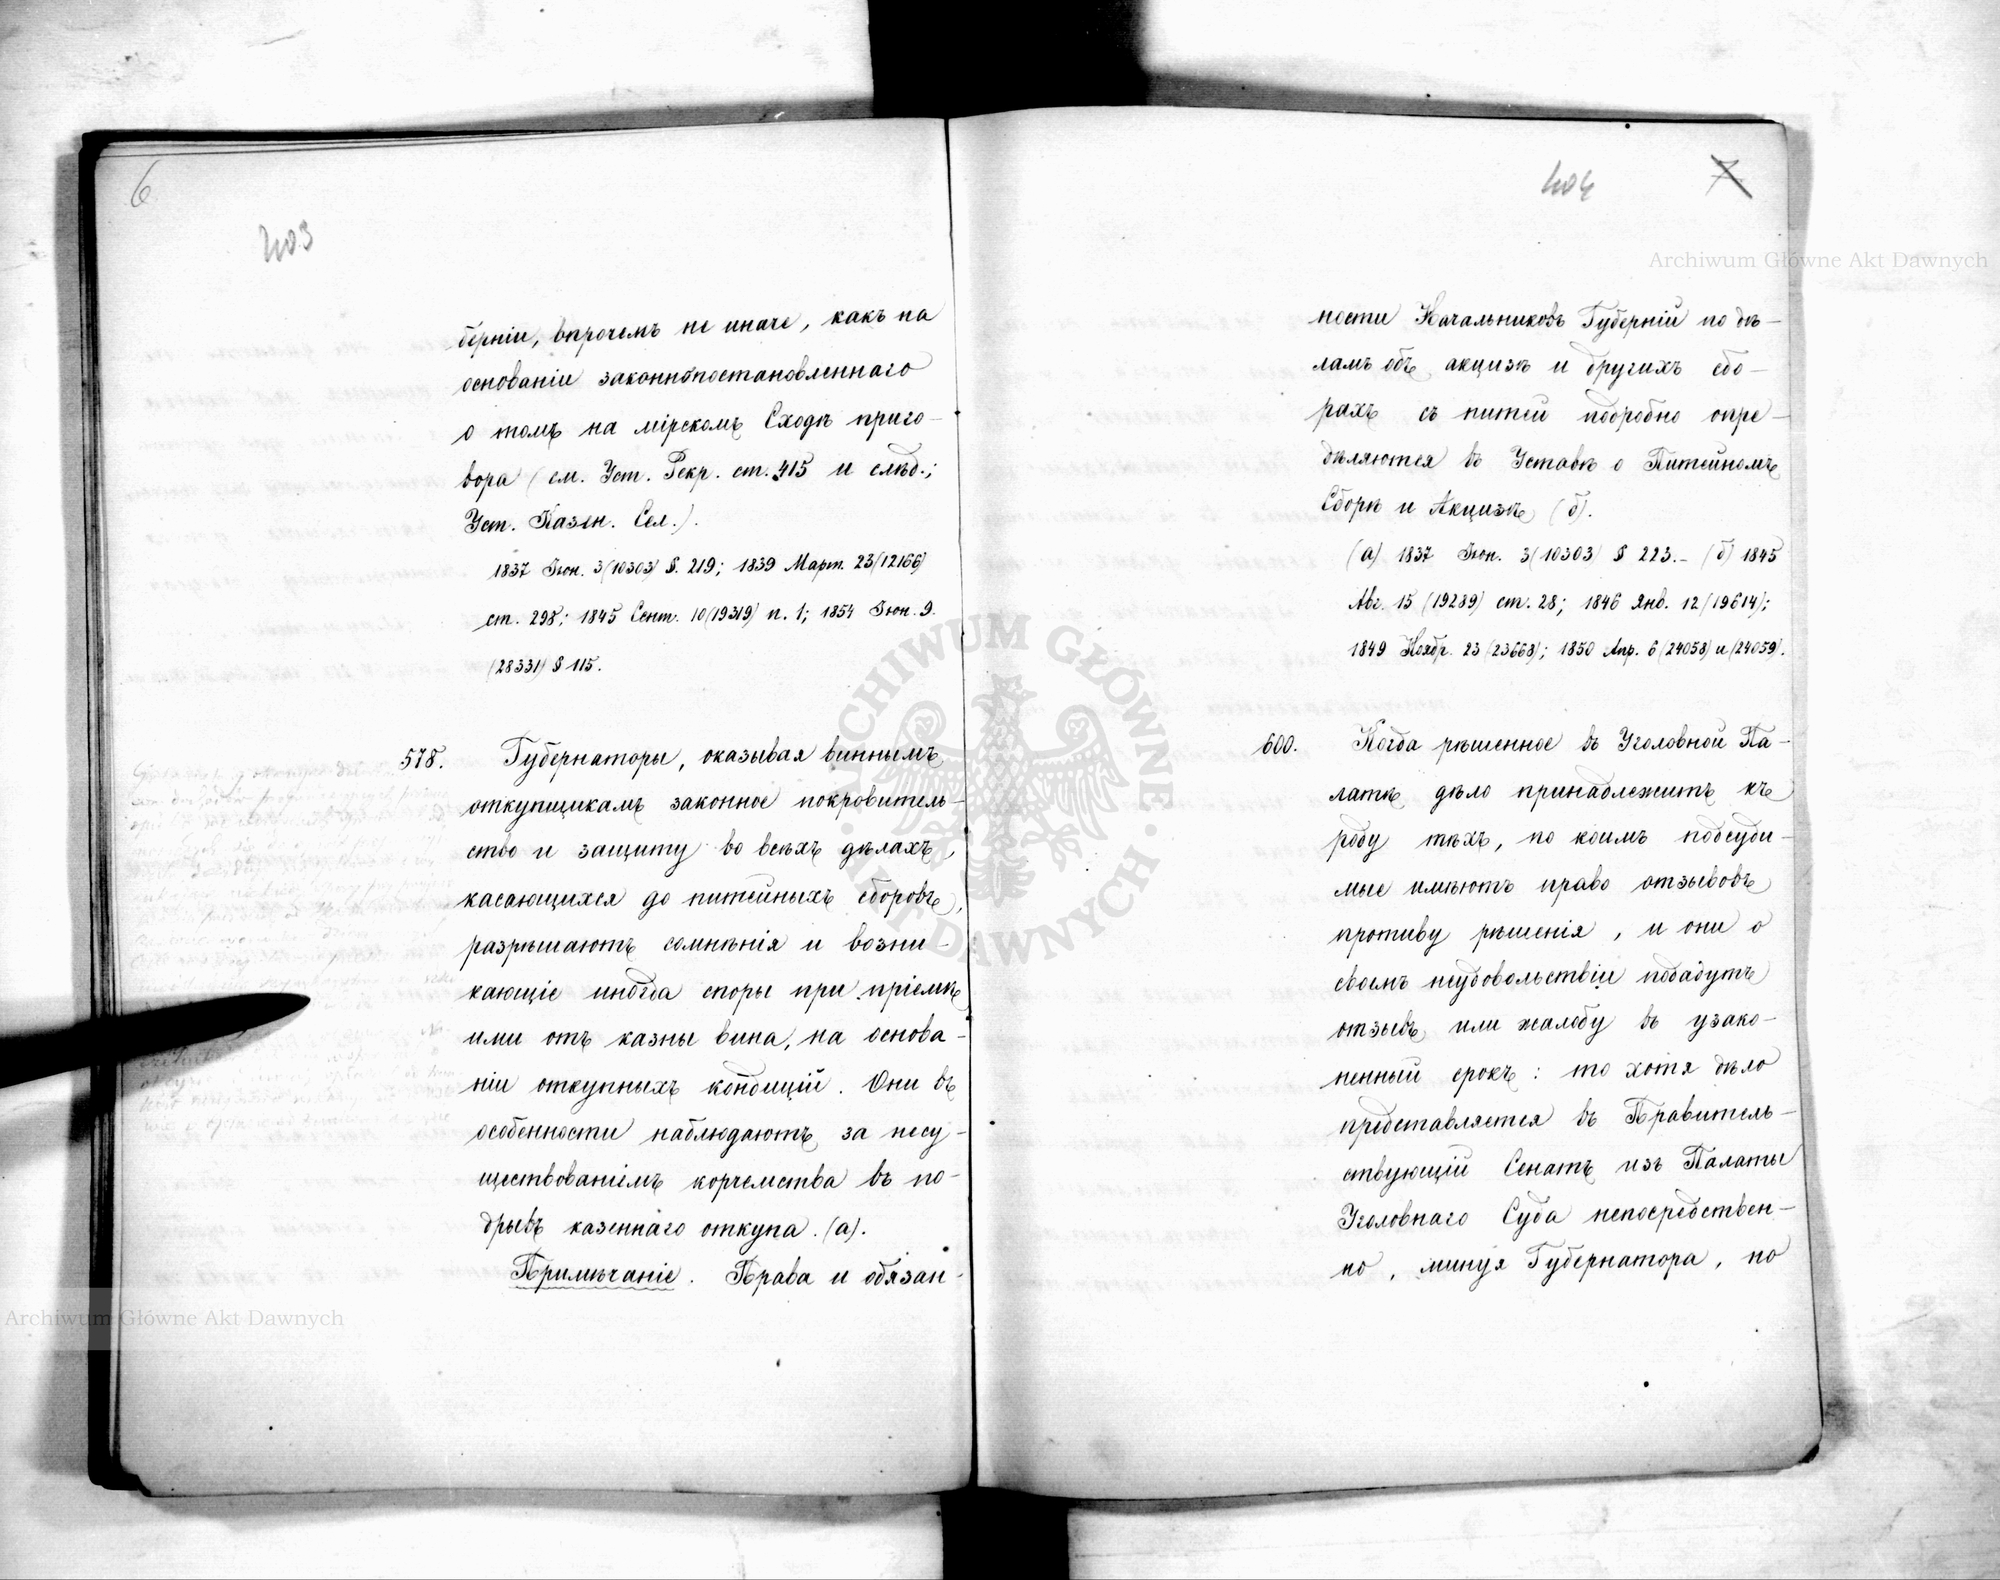 6
403
берніи, впрочемъ не иначе, какъ на
основаніи законнопостановленнаго
о томъ на мірскомъ Сходѣ приго-
вора (см. Уст. Рекр. ст. 415 и слѣд.;
Уст. Казен. Сел.).
1837 Іюн. 3 (10303) §. 219; 1839 Март. 23 (12166)
ст. 298; 1845 Сент. 10 (19319) п. 1; 1854 Іюн. 9.
(28331) § 115.
578. Губернаторы, оказывая виннымъ
откупщикамъ законное покровитель-
ство и защиту во всѣхъ дѣлахъ,
касающихся до питейныхъ сборовъ,
разрѣшаютъ сомнѣнія и возни-
кающіе иногда споры при пріемѣ
ими отъ казны вина, на основа-
ніи откупныхъ кондицій. Они въ
особенности наблюдаютъ за несу-
ществованіемъ корчемства въ по-
дрывъ казеннаго откупа. (а).
Примѣчаніе. Права и обязан-
404
7
ности Начальниковъ Губерніи по дѣ-
ламъ объ акцизѣ и другихъ сбо-
рахъ съ питей подробно опре-
дѣляются въ Уставѣ о Питейномъ
Сборѣ и Акцизѣ (б).
(а) 1837 Іюн. 3 (10303) § 223. – (б) 1845
Авг. 15 (19289) ст. 28; 1846 Янв. 12 (19614);
1849 Ноябр. 23 (23668); 1850 Апр. 6 (24058) и (24059).
600. Когда рѣшенное въ Уголовной Па-
латѣ дѣло принадлежитъ къ
роду тѣхъ, по коимъ подсуди-
мые имѣютъ право отзывовъ
противу рѣшенія, и они о
своемъ неудовольствіи подадутъ
отзывъ или жалобу въ узако-
ненный срокъ: то хотя дѣло
представляется въ Правитель-
ствующій Сенатъ изъ Палаты
Уголовнаго Суда непосредствен-
но, минуя Губернатора, но
Archiwum Główne Akt Dawnych
Archiwum Główne Akt Dawnych
ARCHIWUM GŁÓWNE AKT DAWNYCH